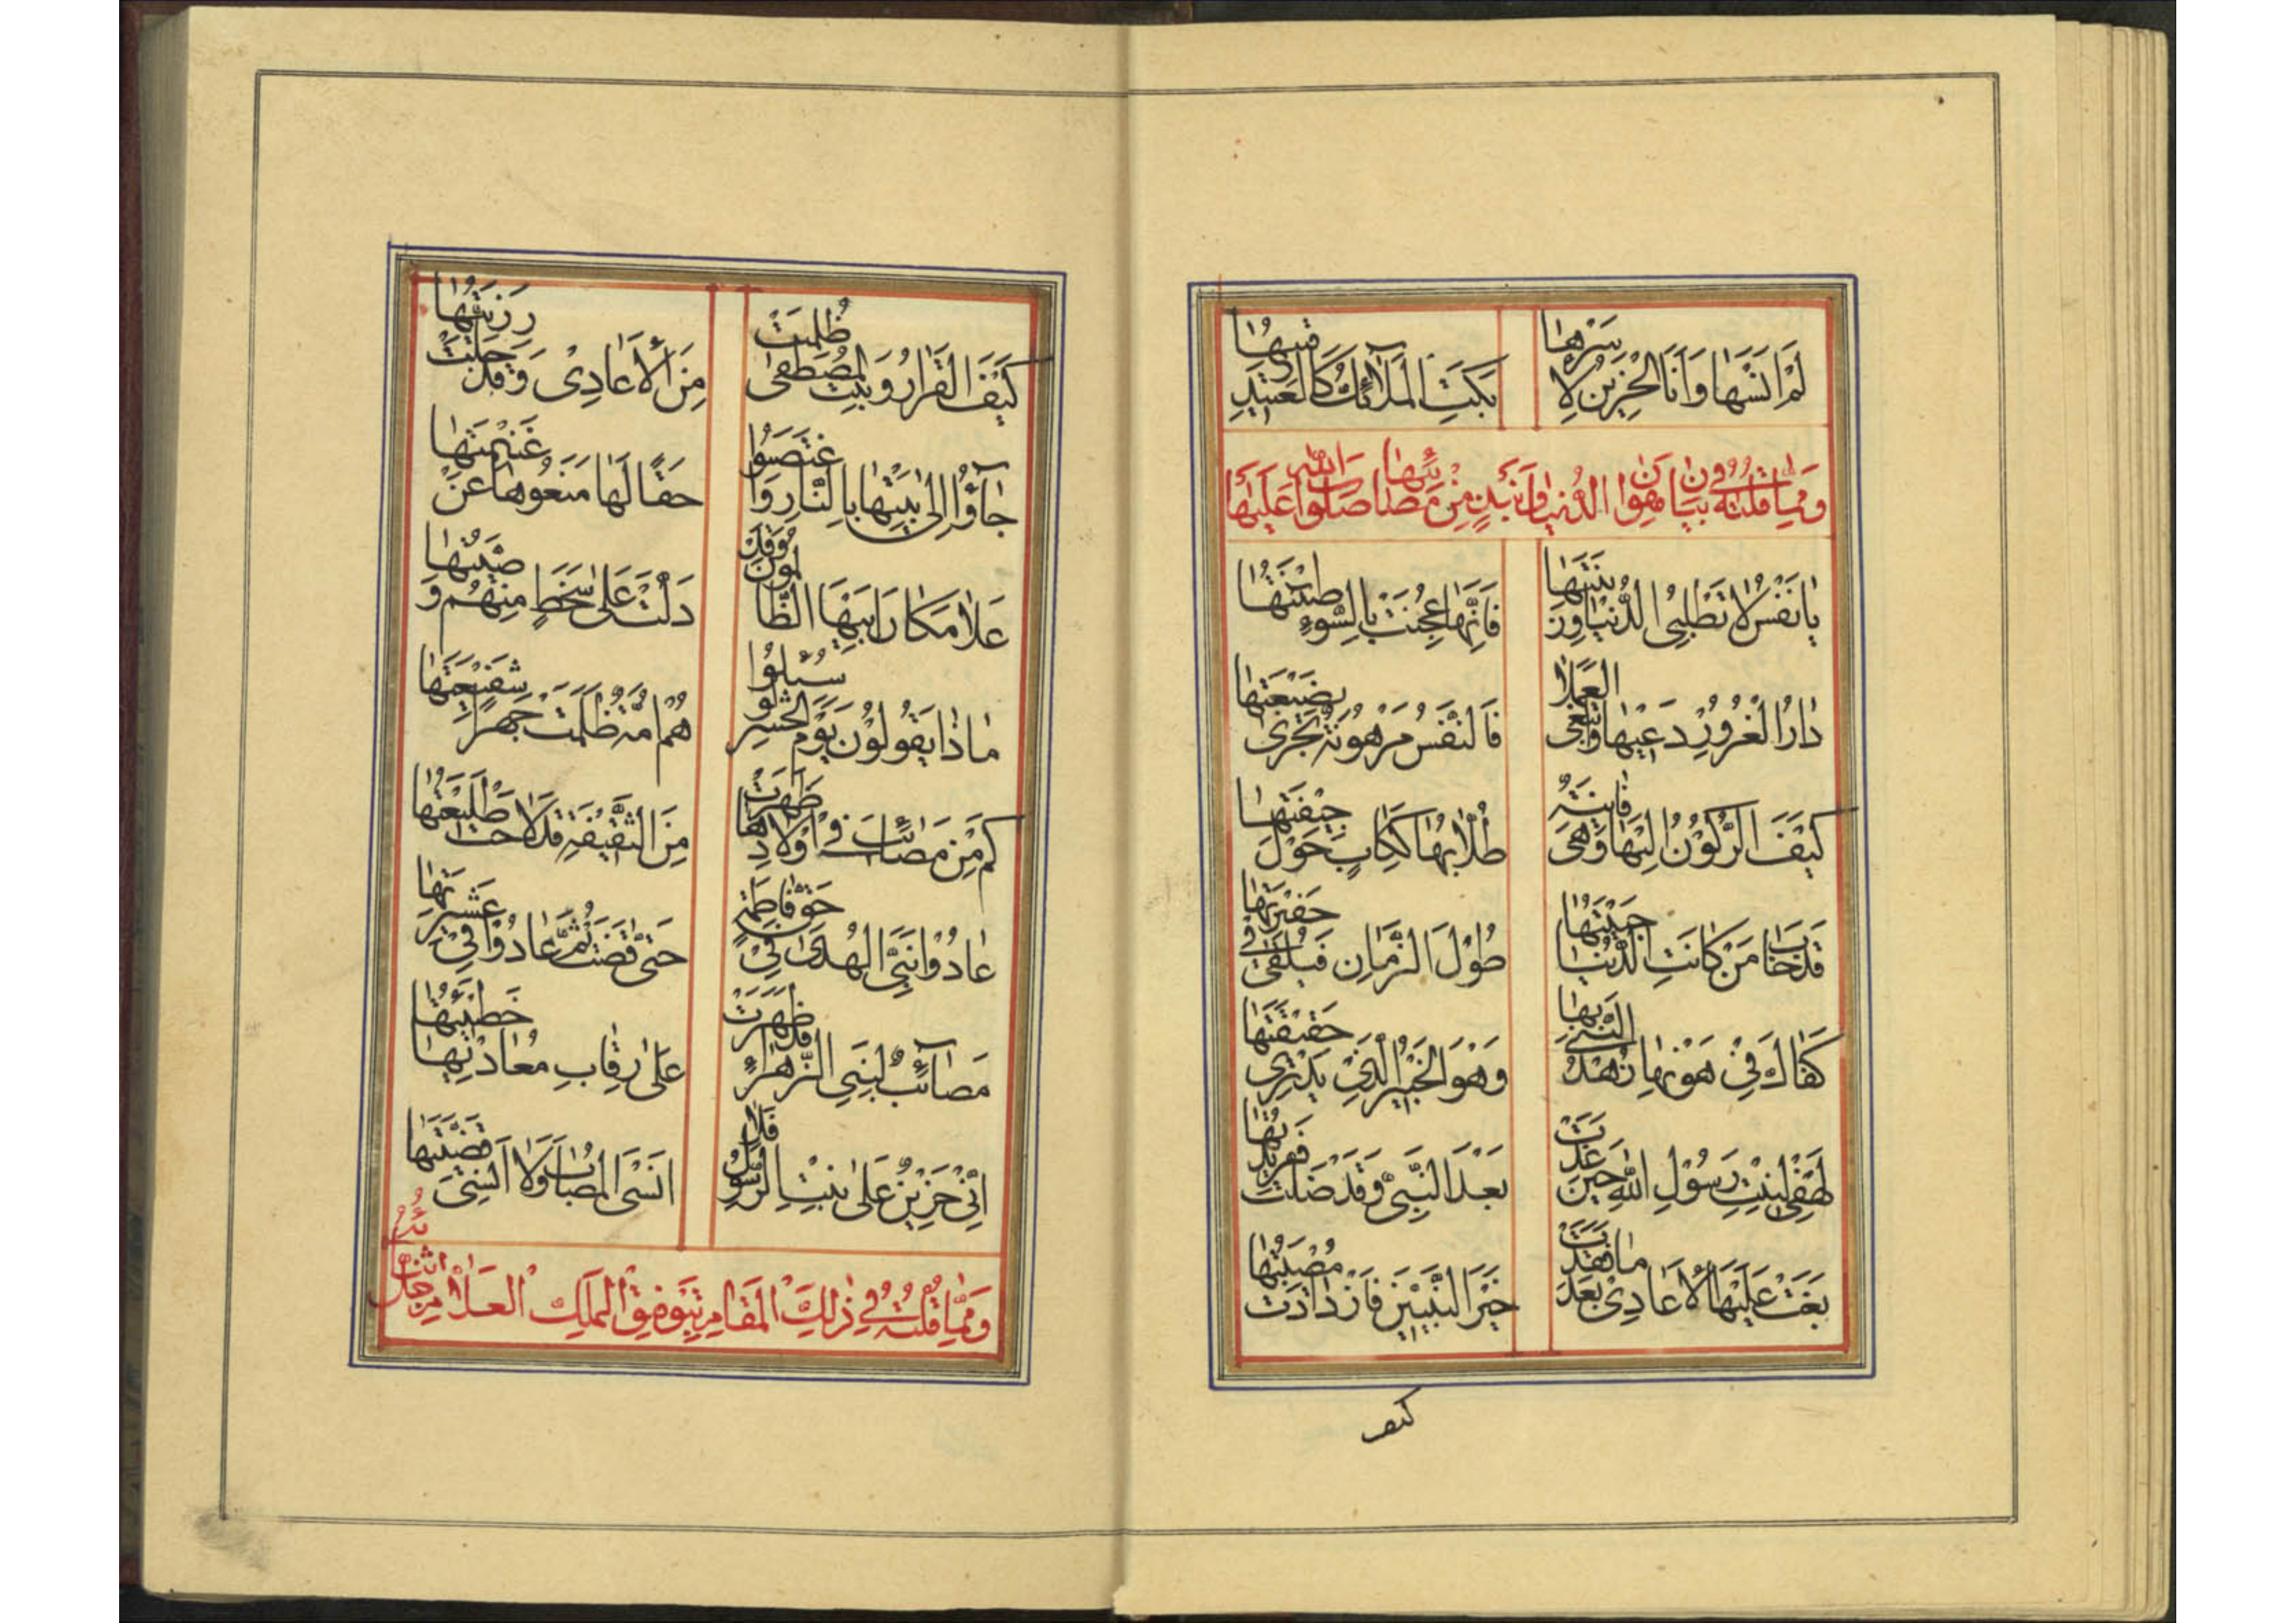 لَمْ اَنْسَهَا وَاَنَا الْحَزِيْنُ لِاَسْرِهَا
بَكَتِ الْمَلَآئِكُ كَالْعَبِيْدِ فِيْهَا
وَمِمَّا قُلْتُهُ فِىْ بَيَانِ هَوَانِ الدُّنْيَا مِنْ مَصَائِبِهَا صَلَوَاتُ اللهِ عَلَيْهَا
يَا نَفْسُ لَا تَطْلُبِى الدُّنْيَا وَزِيْنَتَهَا
فَاِنَّهَا عُجِنَتْ بِالسُّوْءِ طِيْنَتُهَا
دَارُ الْغُرُوْرِ دَعِيْهَا وَابْتَغِى الْعَمَلَا
فَالنَّفْسُ مَرْهُوْنَةٌ تُجْزٰى بِضَيْعَتِهَا
كَيْفَ الرُّكُوْنُ اِلَيْهَا وَهْىَ فَانِيَةٌ
طُلَّابُهَا كَكِلَابٍ حَوْلَ جِيْفَتِهَا
قَدْ خَابَ مَنْ كَانَتِ الدُّنْيَا حَبِيْبَتَهَا
طُوْلَ الزَّمَانِ فَيُلْقٰى فِىْ حَفِيْرَتِهَا
كَفَاكَ فِىْ هَوْنِهَا زُهْدُ النَّبِىِّ بِهَا
وَهُوَ الْخَبِيْرُ الَّذِىْ يَدْرِىْ حَقِيْقَتَهَا
لَهْفِىْ لِبِنْتِ رَسُوْلِ اللهِ حِيْنَ غَدَتْ
بَعْدَ النَّبِىِّ وَقَدْ ضَلَّتْ
بَغَتْ عَلَيْهَا الْاَعَادِىْ بَعْدَ مَا فَقَدَتْ
خَيْرَ النَّبِيِّيْنَ فَازْدَادَتْ مُصِيْبَتُهَا
كيف
كَيْفَ الْقَرَارُ وَبِنْتُ الْمُصْطَفٰى ظُلِمَتْ
مِنَ الْاَعَادِىْ وَقَدْ جَلَّتْ رَزِيَّتُهَا
جَآؤُا اِلٰى بَيْتِهَا بِالنَّارِ وَاغْتَصَبُوْا
حَقًّا لَهَا مَنَعُوْهَا عَنْ غَنِيْمَتِهَا
عَلَا مَكَانَ اَبِيْهَا الظَّالِمُوْنَ وَقَدْ
دَلَّتْ عَلٰى سَخَطٍ مِنْهُمْ وَصِيَّتُهَا
مَاذَا يَقُوْلُوْنَ يَوْمَ الْحَشْرِ لَوْ سُئِلُوْا
هُمْ اُمَّةٌ ظَلَمَتْ جَهْرًا شَفِيْعَتَهَا
كَمْ مِنْ مَصَائِبَ فِىْ اَوْلَادِهَا ظَهَرَتْ
مِنَ الثَّقِيْفَةِ قَدْ لَاحَتْ طَلِيْعَتُهَا
عَادُوْا نَبِىَّ الْهُدٰى فِىْ حَقِّ فَاطِمَةٍ
حَتّٰى قَضَتْ ثُمَّ عَادُوْا فِىْ عَشِيْرَتِهَا
مَصَآئِبٌ لِبَنِى الزَّهْرَاءِ قَدْ ظَهَرَتْ
عَلٰى رِقَابِ مُعَادِيْهَا خَطِيْئَتُهَا
اِنِّىْ حَزِيْنٌ عَلٰى بِنْتِ الرَّسُوْلِ فَلَا
اَنْسَى الْمُصَابَ وَلَا اَنْسٰى قَضِيَّتَهَا
وَمِمَّا قُلْتُهُ فِىْ ذٰلِكَ الْمَقَامِ بِتَوْفِيْقِ الْمَلِكِ الْعَلَّامِ